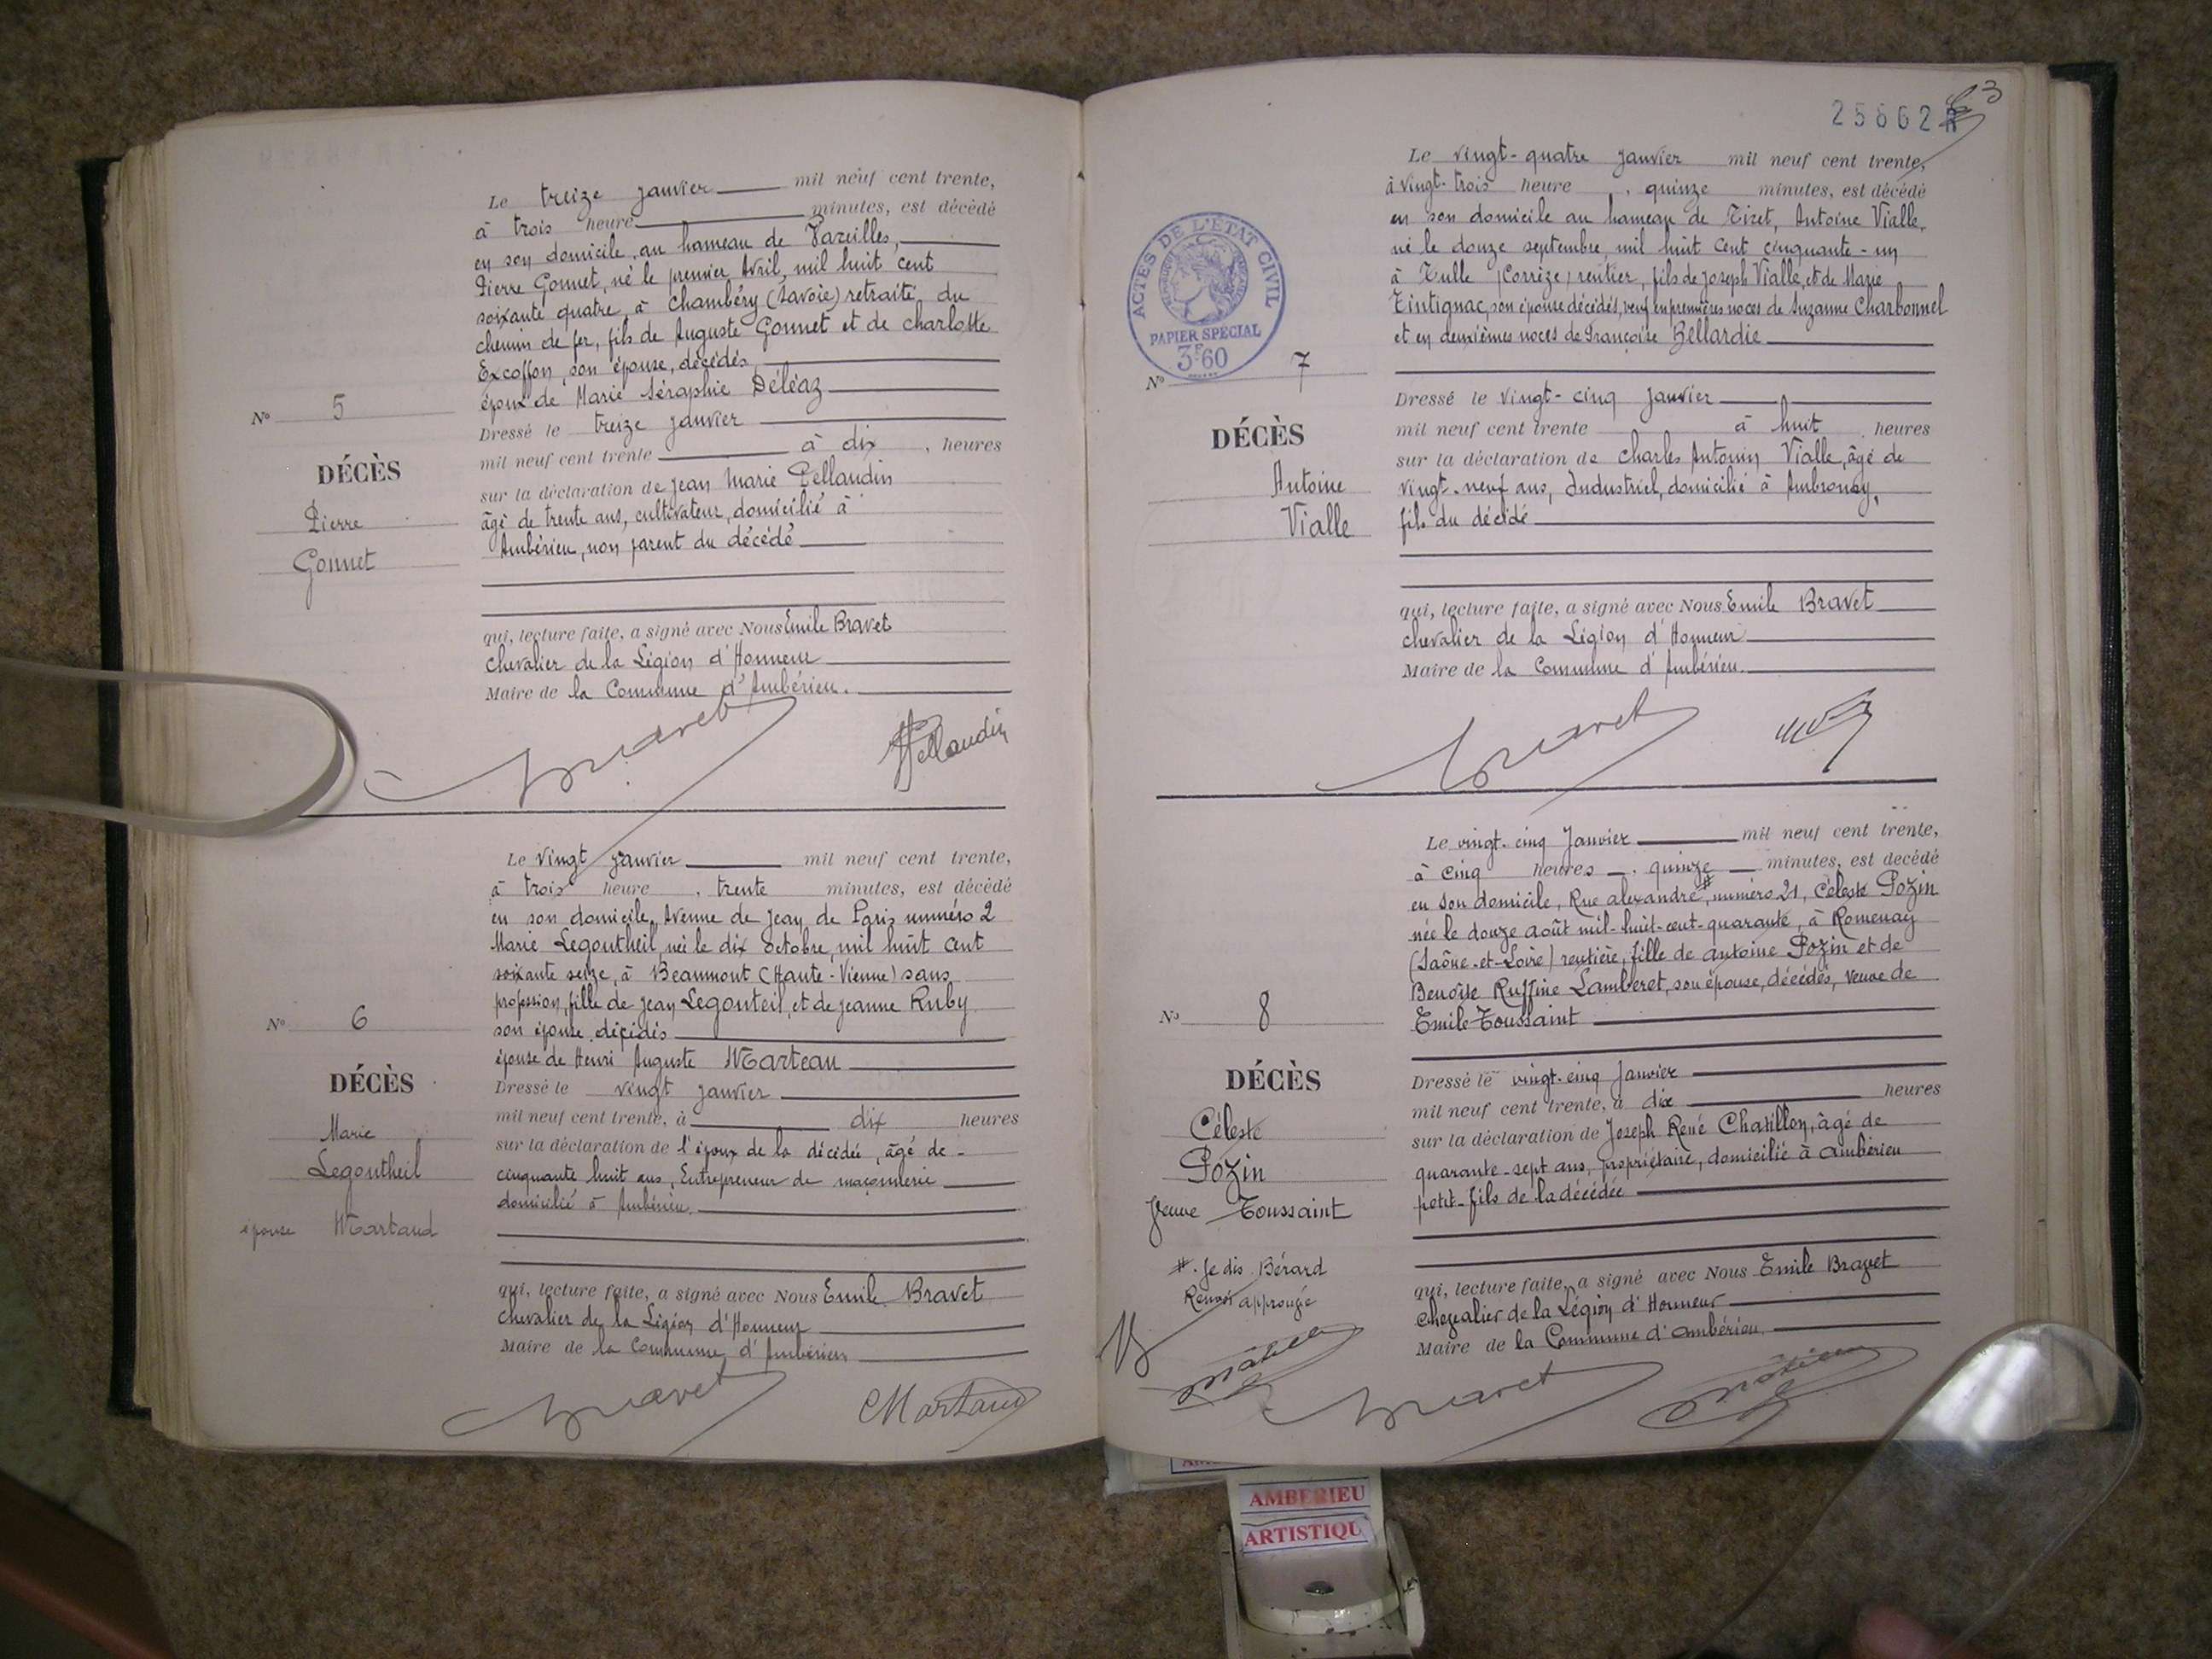 Le treize janvier mil neuf cent trente,
à trois heure minutes, est décédé
en son domicile, au hameau de Vareilles,
Pierre Gonnet, né le premier Avril, mil huit cent
soixante quatre, à Chambéry (Savoie) retraité du
chemin de fer, fils de Auguste Gonnet et de Charlotte
Excoffon, son épouse, décédés
époux de Marie Séraphie Déléaz
N° 5
Dressé le treize janvier
mil neuf cent trente à dix heures
DÉCÈS
sur la déclaration de Jean Marie Pellaudin
Pierre
âgé de trente ans, cultivateur, domicilié à
Gonnet
Ambérieu, non parent du décédé
qui, lecture faite, a signé avec Nous Emile Bravet
Chevalier de la Légion d'Honneur
Maire de la Commune d'Ambérieu.
Bravet
Pellaudin
Le vingt janvier mil neuf cent trente,
à trois heure, trente minutes, est décédé
en son domicile, Avenue de Jean de Paris numéro 2
Marie Legoutheil, née le dix Octobre, mil huit cent
soixante seize, à Beaumont (Haute-Vienne) sans
profession, fille de Jean Legouteil, et de Jeanne Ruby
N° 6
son épouse, décédés
épouse de Henri Auguste Marteau
DÉCÈS
Dressé le vingt janvier
mil neuf cent trente, à dix heures
Marie
sur la déclaration de l'époux de la décédée, âgé de
Legoutheil
cinquante huit ans, Entrepreneur de maçonnerie
domicilié à Ambérieu.
épouse Martaud
qui, lecture faite, a signé avec Nous Emile Bravet
Chevalier de la Légion d'Honneur
Maire de la Commune d'Ambérieu
Bravet
Martaud
25862
3
Le vingt-quatre janvier mil neuf cent trente,
à vingt-trois heure, quinze minutes, est décédé
en son domicile au hameau de Tiret, Antoine Vialle,
né le douze septembre, mil huit cent cinquante-un
à Tulle (Corrèze) rentier, fils de Joseph Vialle, et de Marie
Tintignac, son épouse décédés, veuf en premières noces de Suzanne Charbonnel
et en deuxièmes noces de Françoise Bellardie
ACTES DE L'ÉTAT CIVIL
PAPIER SPÉCIAL
3F60
N° 7
Dressé le vingt-cinq janvier
DÉCÈS
mil neuf cent trente à huit heures
sur la déclaration de Charles Antonin Vialle, âgé de
Antoine
vingt-neuf ans, Industriel, domicilié à Ambronay,
Vialle
fils du décédé
qui, lecture faite, a signé avec Nous Emile Bravet
Chevalier de la Légion d'Honneur
Maire de la Commune d'Ambérieu.
Bravet
Le vingt-cinq Janvier mil neuf cent trente,
à cinq heures, quinze minutes, est décédé
en son domicile, Rue Alexandre #, numéro 21, Céleste Pozin
née le douze août mil-huit-cent-quarante, à Romenay
(Saône-et-Loire) rentière, fille de Antoine Pozin et de
Benoîte Ruffine Lamberet, son épouse, décédés, veuve de
N° 8
Emile Toussaint
DÉCÈS
Dressé le vingt-cinq Janvier
mil neuf cent trente, à dix heures
Céleste
sur la déclaration de Joseph René Chatillon, âgé de
Pozin
quarante-sept ans, propriétaire, domicilié à Ambérieu
Veuve Toussaint
petit-fils de la décédée
#. Je dis Bérard
Renvoi approuvé
qui, lecture faite, a signé avec Nous Emile Bravet
Chevalier de la Légion d'Honneur
Maire de la Commune d'Ambérieu
Bravet
AMBERIEU
ARTISTIQU